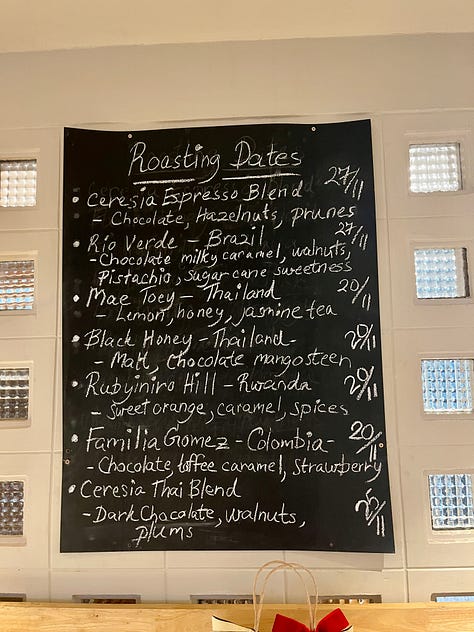 Roasting Dates
• Ceresia Espresso Blend 27/11
- Chocolate, Hazelnuts, prunes
• Rio Verde - Brazil 27/11
- Chocolate milky caramel, walnuts,
Pistachio, sugar cane sweetness
• Mae Toey - Thailand 20/11
- Lemon, honey, jasmine tea
• Black Honey - Thailand- 20/11
- Malt, chocolate mangosteen
• Rubyiniro Hill - Rwanda 20/11
- sweet orange, caramel, spices
• Familia Gomez - Colombia- 20/11
- Chocolate, toffee caramel, strawberry
• Ceresia Thai Blend
- Dark Chocalate, walnuts,
plums